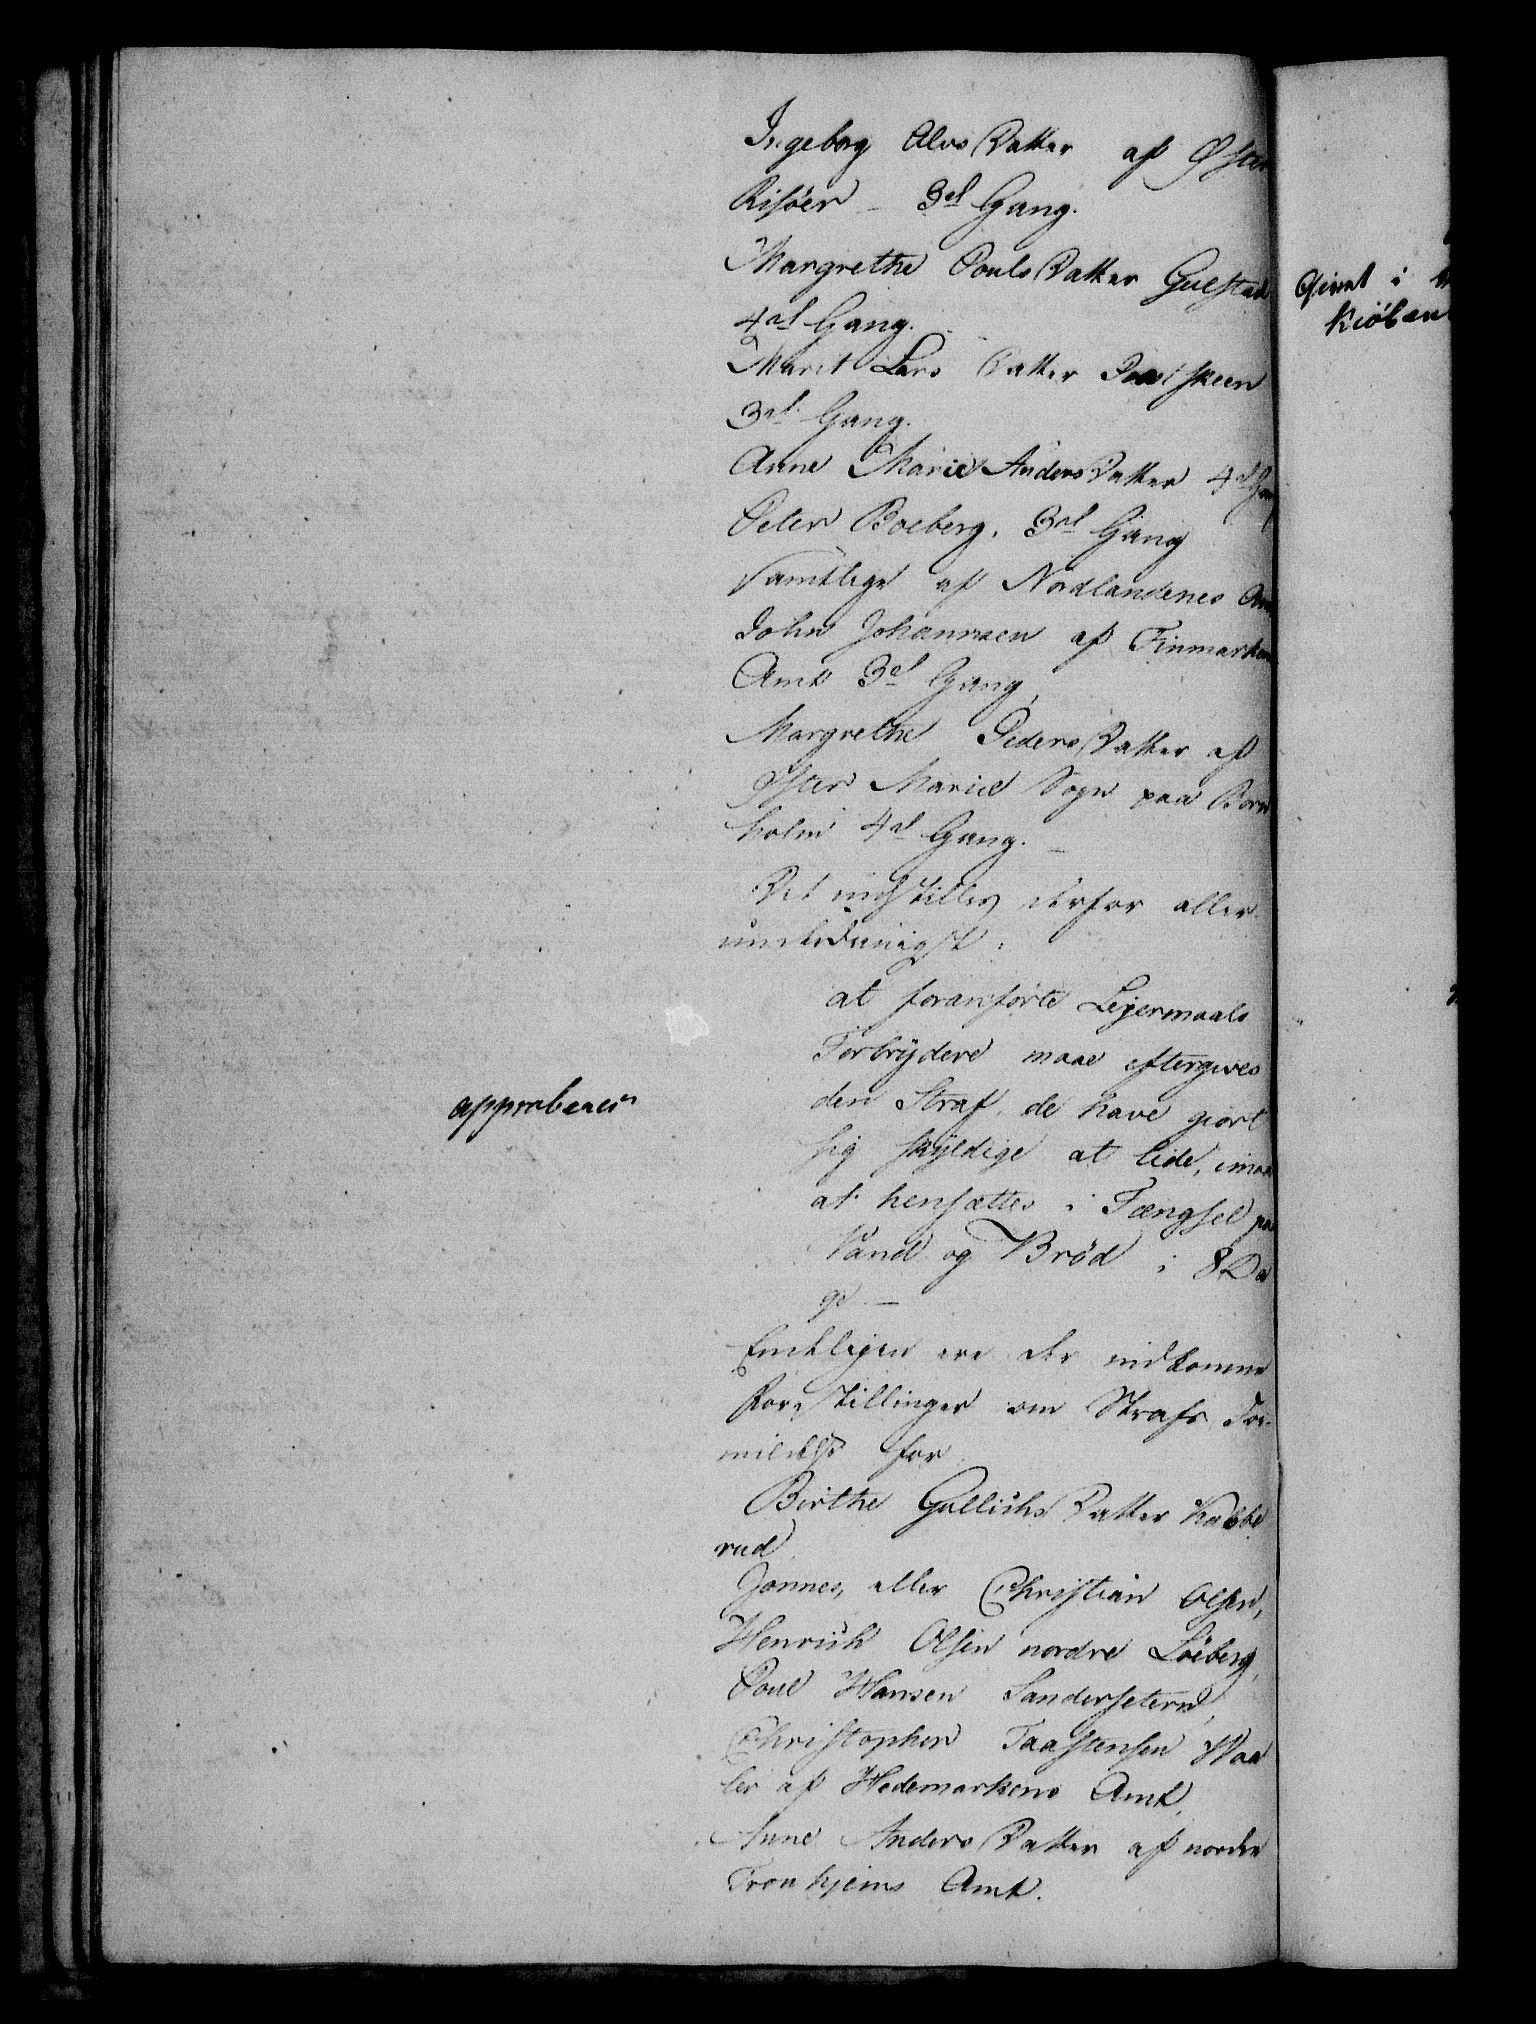 Ingeborg Alvs Datter af Øster
Risöer - 3de Gang.
Margrethe Pouls Datter Gulstad
4de Gang.
Marit Lars Datter skeen
3de Gang.
Anne Marie Anders Datter 4de Gang
Peter Boeberg. 3de Gang
samtlige af Nordlandenes Am
John Johannsen af Finmarkens
Amt 3de Gang,
Margrethe Peders Datter af
Øster Marie Sogn paa Born
holm 4de Gang. -
Det indstilles derfor aller
underdanigst:
at foranførte Lejermaals
Forbrydere maae eftergives
den Straf, de have giort
sig skyldige at lide, imod
at hensættes i Fængsel paa
Vand og Brød i 8 Da
ge -
approberes
Endeligen ere der indkomne
Forestillinger om Strafs For-
mildelse for
Birthe Gullichs Datter Kabbe
rud
Jonnes, eller Christian Olsen,
Henrich Olsen nordre Löberg,
Poul Hansen Sandersetern,
Christopher Taastensen Waa
ler af Hedemarkens Amt,
Anne Anders Datter af nordre
Tronhjems Amt.
Givet i
Kiöben